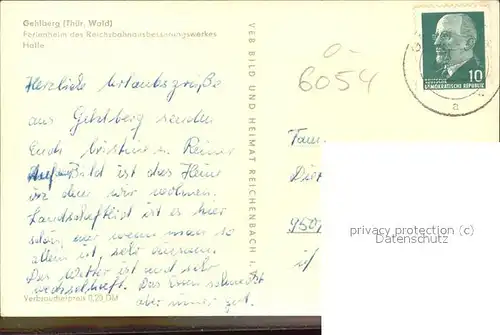 Gehlberg (Thür. Wald)
Ferienheim des Reichsbahnausbesserungswerkes
Halle
Herzliche Urlaubsgrüße
aus Gehlberg senden
Euch Christine u. Reiner
Auf Bild ist das Heim
in dem wir wohnen.
Landschaftlich ist es hier
schön, nur wenn man so
allein ist, sehr einsam.
Das Wetter ist noch sehr
wechselhaft. Das Essen schmeckt
aber immer gut.
Verbraucherpreis 0,20 DM
VEB BILD UND HEIMAT REICHENBACH i. V.
6054
10
DEUTSCHE
DEMOKRATISCHE REPUBLIK
a
Fam.
Diet
950
privacy protection (c)
Datenschutz